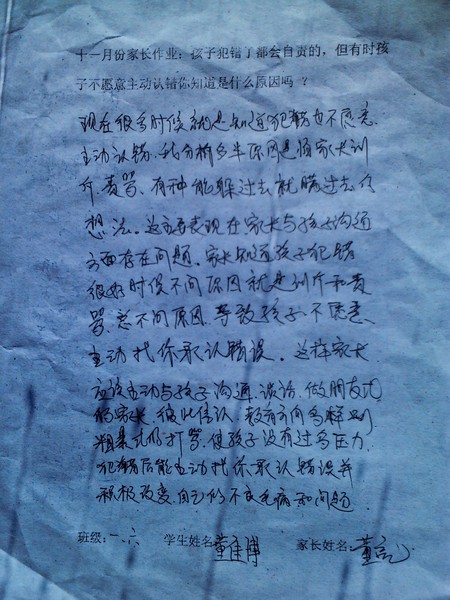 十一月份家长作业：孩子犯错了都会自责的，但有时孩
子不愿意主动认错你知道是什么原因吗？
现在很多时候就是知道犯错也不愿意
主动认错，我分析多半原因是怕家长训
斥、责骂、有种能躲过去就瞒过去的
想法。这主要表现在家长与孩子沟通
方面存在问题。家长知道孩子犯错
很好时候不问原因就是训斥和责
骂，总不问原因，导致孩子不愿意、
主动找你承认错误。这样家长
应该主动与孩子沟通、谈话、做朋友式
的家长，彼此信认，教育方向多样别
粗暴式的打骂，使孩子没有过多压力，
犯错后能主动找你承认错误并
积极改变自己的不良毛病和问题。
班级：一、六 学生姓名 董 博 家长姓名：董